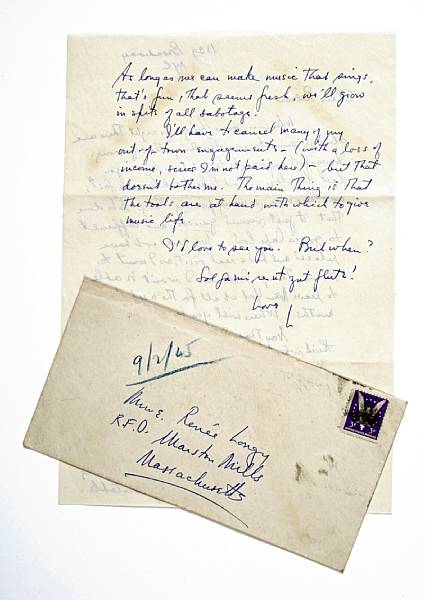 As long as we can make music that sings,
that's fun, that seems fresh, we'll grow
in spite of all sabotage.
I'll have to cancel many of my
out-of-town engagements - (with a loss of
income, since I'm not paid here) - but that
doesn't bother me. The main thing is that
the tools are at hand with which to give
music life.
I'd love to see you. But when?
Love
L
9/2/45
Mme. Renée Longy
R.F.D. Marston Mills
Massachusetts
3¢